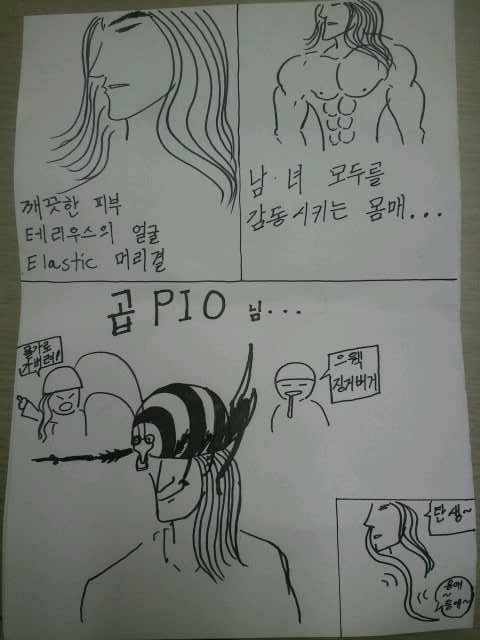 깨끗한 피부
테리우스의 얼굴
Elastic 머리결
남·녀 모두를
감동시키는 몸매...
곱 PIO 님...
으웩
징거버거
탄생~
몸매